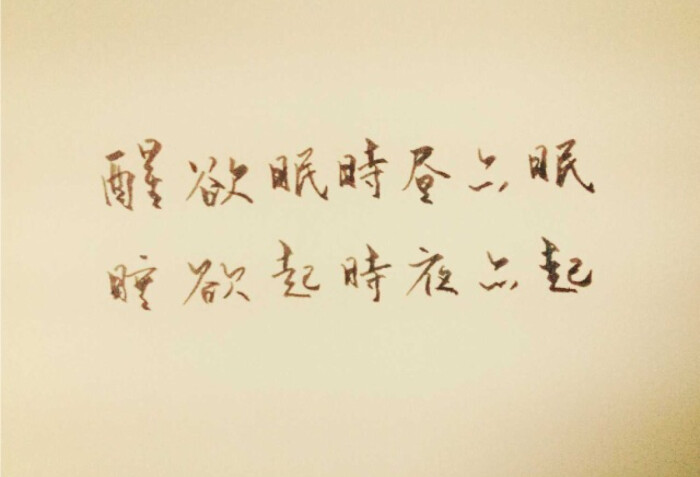 醒欲眠時昼亦眠
睡欲起時夜亦起